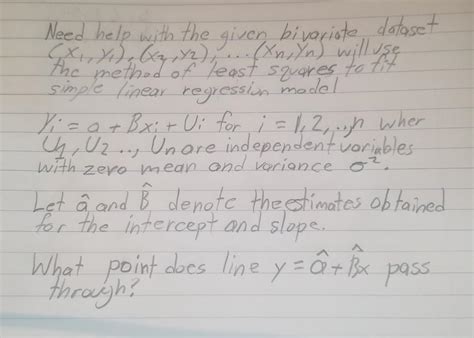 Need help with the given bivariate dataset
(x₁, y₁), (x₂, y₂), ... (xn, yn) will use
the method of least squares to fit
simple linear regression model
Yi = a + Bxi + Ui for i = 1, 2, .., n wher
U₁, U₂ .., Un are independent variables
with zero mean and variance σ².
Let â and B̂ denote the estimates obtained
for the intercept and slope.
What point does line y = â + B̂x pass
through?